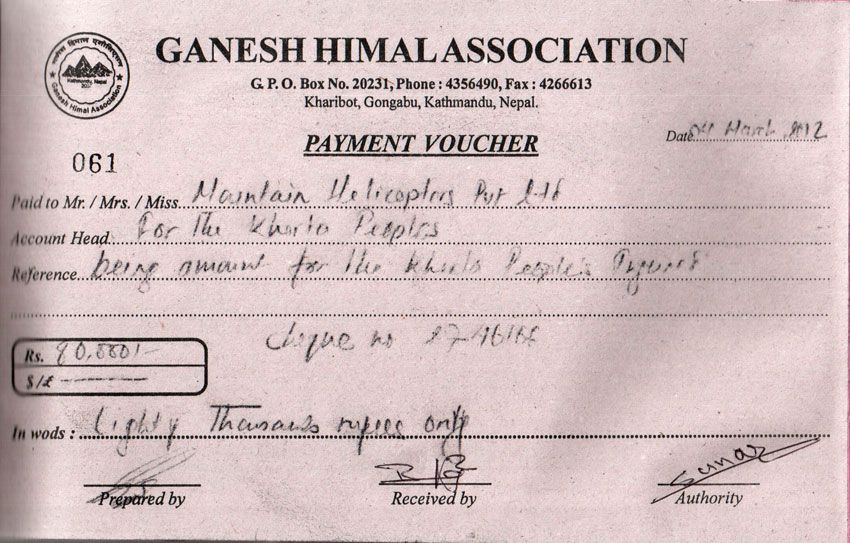 GANESH HIMAL ASSOCIATION
G. P. O. Box No. 20231, Phone : 4356490, Fax : 4266613
Kharibot, Gongabu, Kathmandu, Nepal.
Kathmandu, Nepal
Ganesh Himal Association
PAYMENT VOUCHER
Date 04 March 2012
061
Paid to Mr. / Mrs. / Miss. Mountain Helicopters Pvt Ltd
Account Head. For The Peoples
Reference being amount for the People's
Cheque no
Rs. 80,000/-
$/£ -------
In wods : Eighty Thousands rupees only
Prepared by Received by Authority